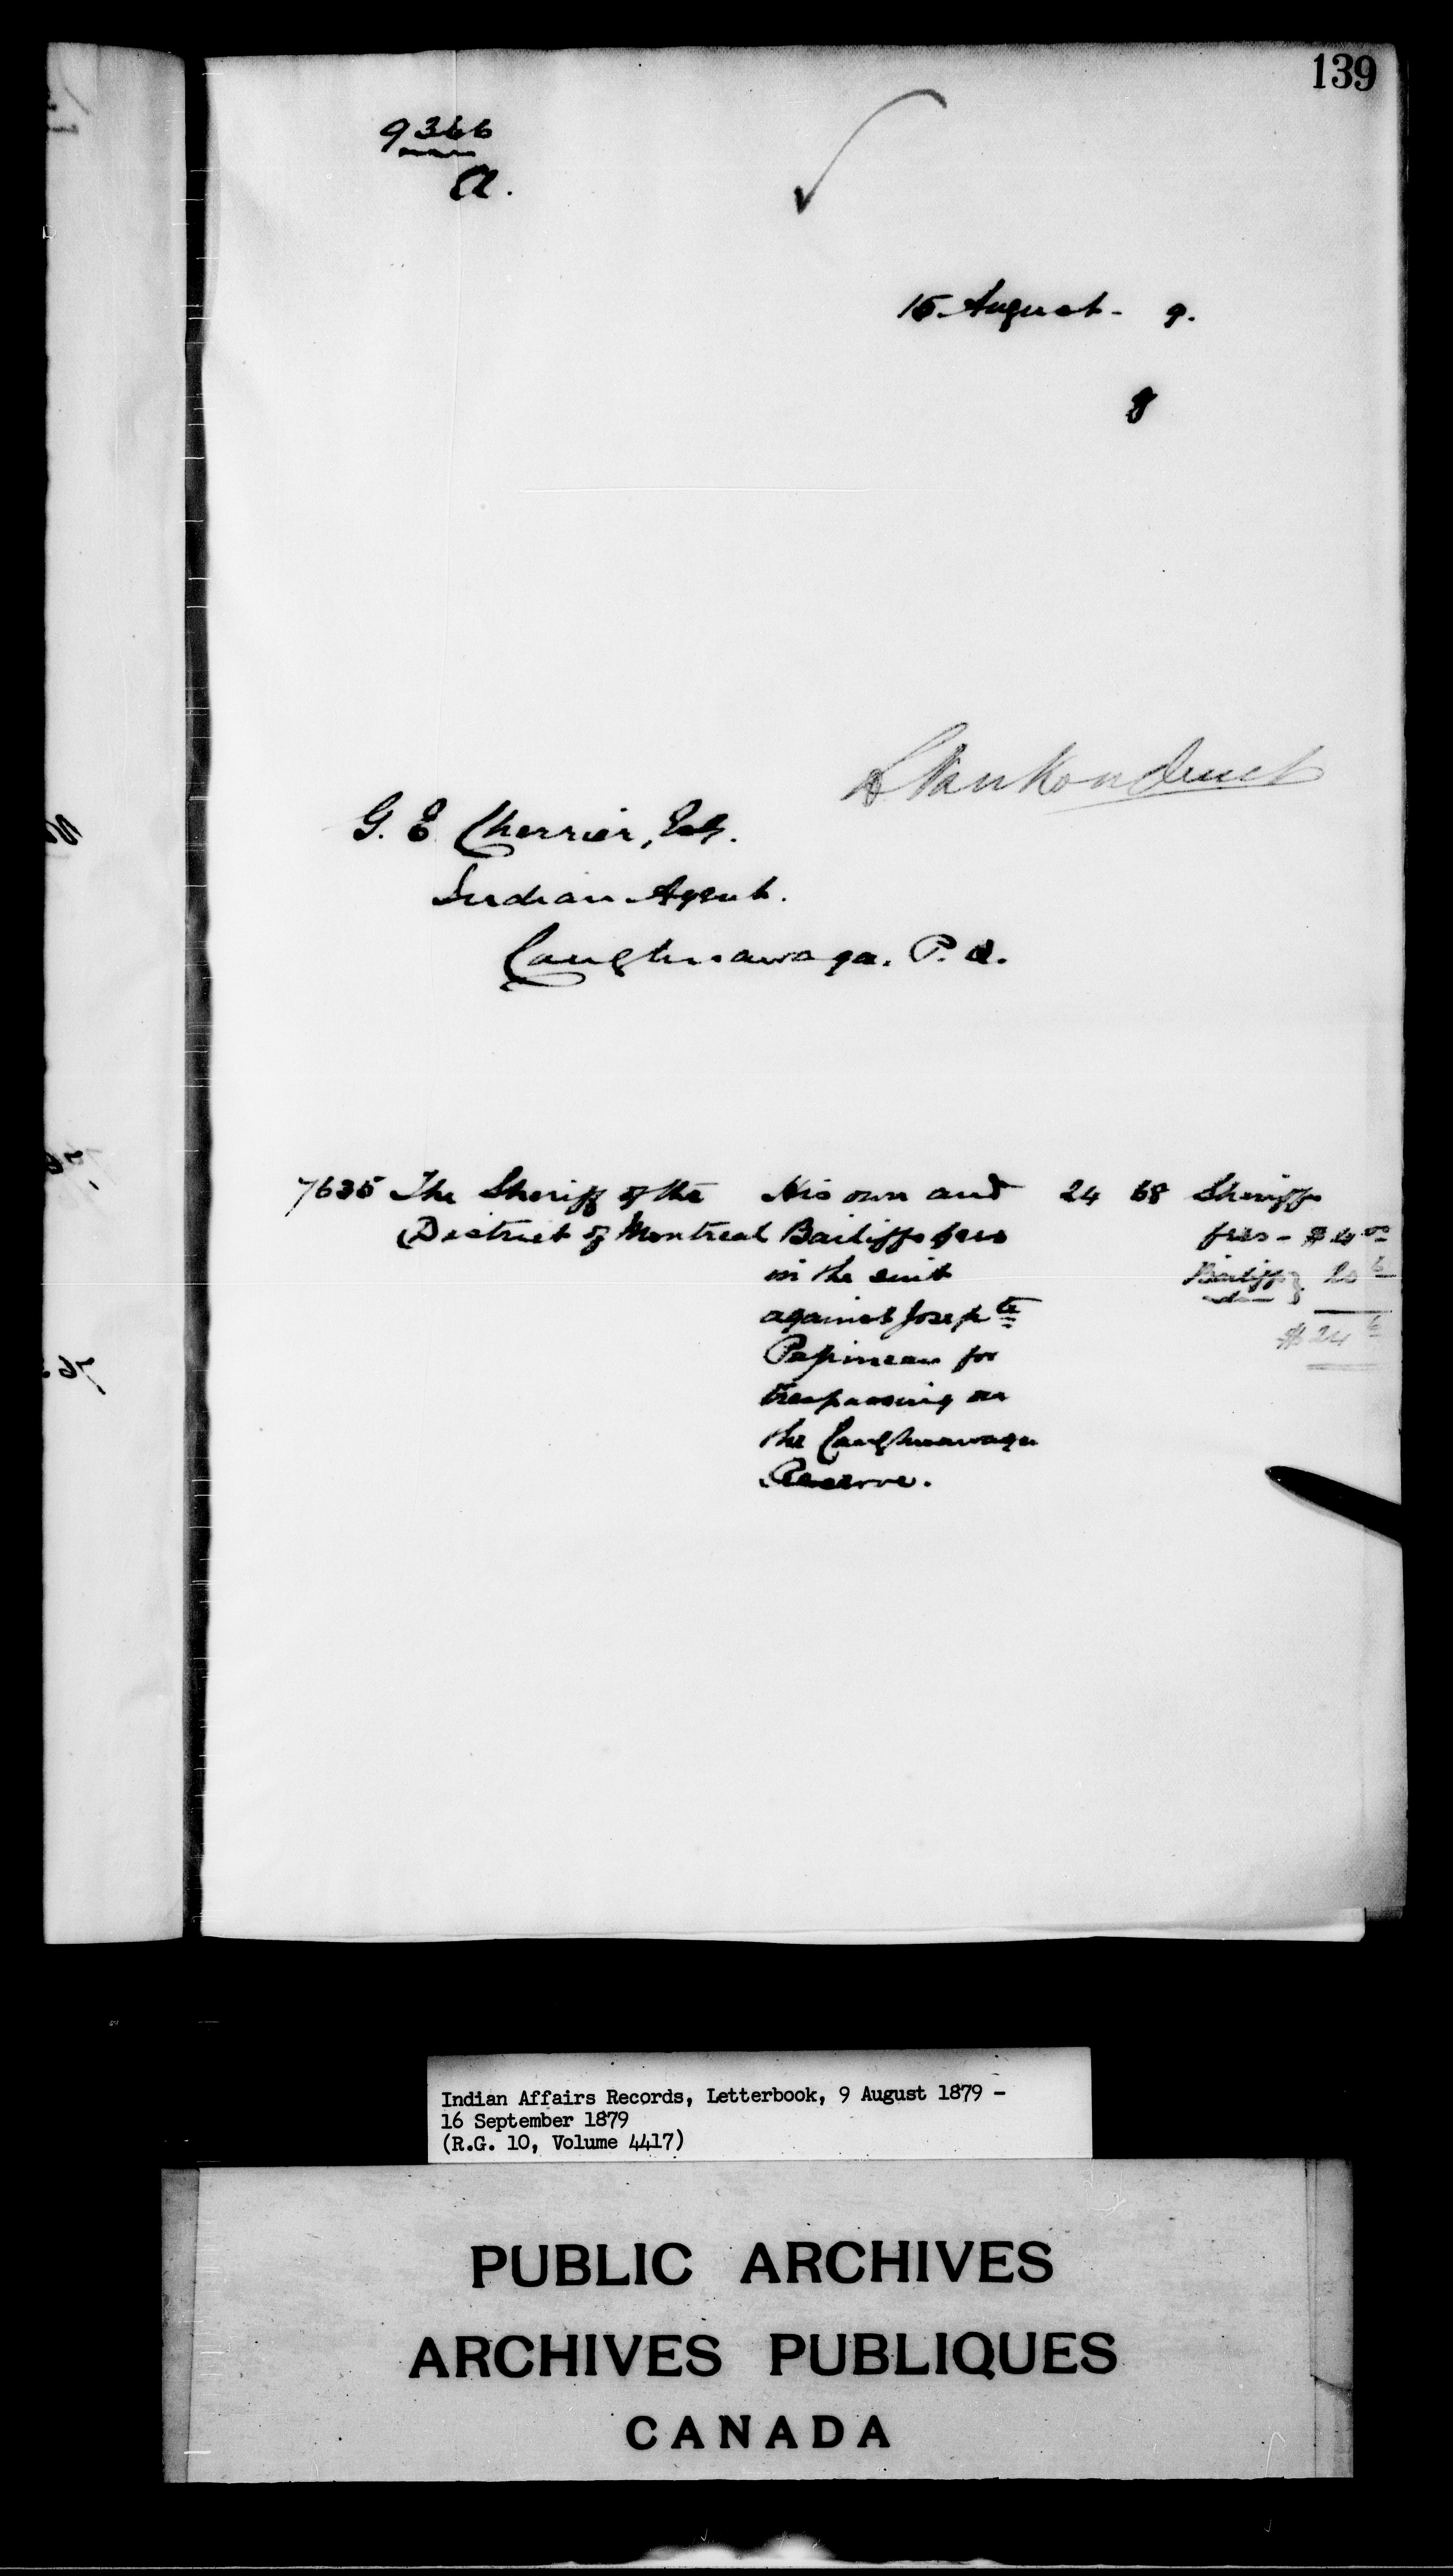 139
9366
A.
15 August - 9.
8
L VanKoughnet
G. E. Cherrier, Esq.
Indian Agent.
Caughnawaga. P. Q.
7635 The Sheriff of the His own and 24 68 Sheriffs
District of Montreal Bailiffs fees fees - $4 00
in the suit Bailiffs 20
against Joseph te $24
Papineau for
trespassing on
the Caughnawaga
Reserve.
Indian Affairs Records, Letterbook, 9 August 1879 -
16 September 1879
(R.G. 10, Volume 4417)
PUBLIC ARCHIVES
ARCHIVES PUBLIQUES
CANADA